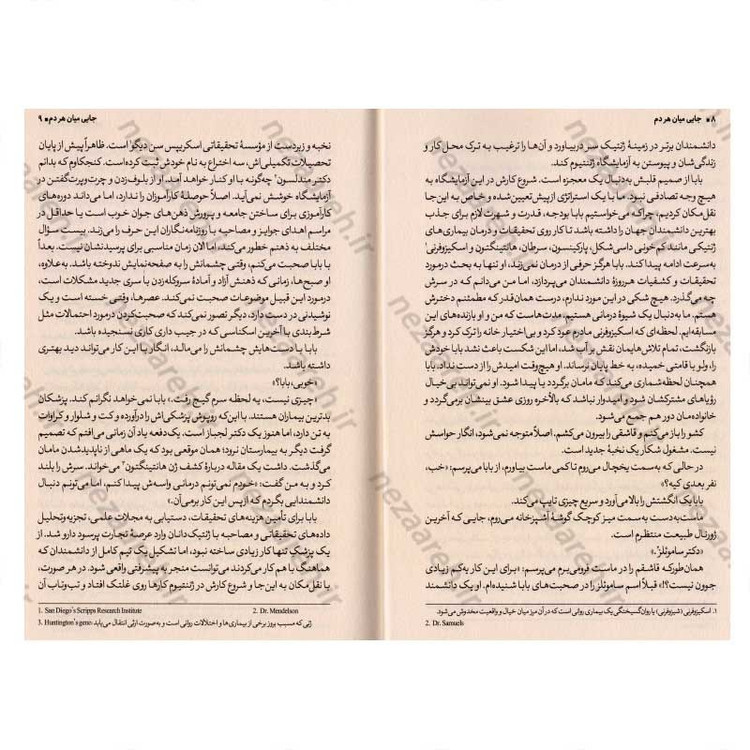 ۸ ■ جایی میان هر دم
دانشمندان برتر در زمینهٔ ژنتیک سر دربیاورد و آن‌ها را ترغیب به ترک محل کار و
زندگی‌شان و پیوستن به آزمایشگاه ژنتیوم کند.
بابا از صمیم قلبش به‌دنبال یک معجزه است. شروع کارش در این آزمایشگاه به
هیچ وجه تصادفی نبود. ما با یک استراتژی از پیش تعیین‌شده و خاص به این‌جا
نقل‌مکان کردیم، چراکه می‌خواستیم بابا بودجه، قدرت و شهرت لازم برای جذب
بهترین دانشمندان جهان را داشته باشد تا کار روی تحقیقات و درمان بیماری‌های
ژنتیکی مانند کم‌خونی داسی‌شکل، پارکینسون، سرطان، هانتینگتون و اسکیزوفرنی¹
به‌سرعت ادامه پیدا کند. بابا هرگز حرفی از درمان نمی‌زند، او تنها به بحث درمورد
تحقیقات و کشفیات هرروزهٔ دانشمندان می‌پردازد، اما من می‌دانم که در سرش
چه می‌گذرد. هیچ شکی در این مورد ندارم، درست همان‌قدر که مطمئنم دخترش
هستم. ما به‌دنبال یک شیوهٔ درمانی هستیم. مدت‌هاست که من و او بازنده‌های این
مسابقه‌ایم. لحظه‌ای که اسکیزوفرنی مادرم عود کرد و بی‌اختیار خانه را ترک کرد و هرگز
بازنگشت، تمام تلاش‌هایمان نقش بر آب شد، اما این شکست باعث نشد بابا خودش
را، ولو با قامتی خمیده، به خط پایان برساند. او هیچ‌وقت امیدش را از دست نداد، بابا
همچنان لحظه‌شماری می‌کند که مامان برگردد یا پیدا شود. او نمی‌تواند بی‌خیال
رؤیاهای مشترکشان شود و امیدوار نباشد که بالأخره روزی عشق بینشان برمی‌گردد و
خانواده‌مان دور هم جمع می‌شود.
کشو را باز می‌کنم و قاشقی را بیرون می‌کشم، اصلاً متوجه نمی‌شود، انگار حواسش
نیست. مشغول شکار یک نخبهٔ جدید است.
در حالی که به‌سمت یخچال می‌روم تا کمی ماست بیاورم، از بابا می‌پرسم: «خب،
نفر بعدی کیه؟»
بابا یک انگشتش را بالا می‌آورد و سریع چیزی تایپ می‌کند.
ماست‌به‌دست به‌سمت میز کوچک گوشهٔ آشپزخانه می‌روم، جایی که آخرین
ژورنال طبیعت منتظرم است.
«دکتر ساموئلز²»
همان‌طورکه قاشقم را در ماست فرومی‌برم می‌پرسم: «برای این کار یه‌کم زیادی
جوون نیست؟!» قبلاً اسم ساموئلز را در صحبت‌های بابا شنیده‌ام. او یک دانشمند
۱. اسکیزوفرنی (شیزوفرنی) یا روان‌گسیختگی یک بیماری روانی است که در آن مرز میان خیال و واقعیت مخدوش می‌شود.
2. Dr. Samuels
جایی میان هر دم ■ ۹
نخبه و زبردست از مؤسسهٔ تحقیقاتی اسکریپس سن دیگو¹ است. ظاهراً پیش از پایان
تحصیلات تکمیلی‌اش، سه اختراع به نام خودش ثبت کرده است. کنجکاوم که بدانم
دکتر مندلسون² چگونه با او کنار خواهد آمد، او از بلوف‌زدن و چرت‌وپرت‌گفتن در
آزمایشگاه خوشش نمی‌آید. اصلاً حوصلهٔ کارآموزان را ندارد، اما می‌داند دوره‌های
کارآموزی برای ساختن جامعه و پرورش ذهن‌های جوان خوب است یا حداقل در
مراسم اهدای جوایز و مصاحبه با روزنامه‌نگاران این حرف را می‌زند. بیست سؤال
مختلف به ذهنم خطور می‌کند، اما الان زمان مناسبی برای پرسیدنشان نیست. بعداً
با بابا صحبت می‌کنم، وقتی چشمانش را به صفحه‌نمایش ندوخته باشد. به‌علاوه،
او صبح‌ها، زمانی که ذهنش آزاد و آمادهٔ سروکله‌زدن با سری جدید مشکلات است،
درمورد این قبیل موضوعات صحبت نمی‌کند. عصرها، وقتی خسته است و یک
نوشیدنی در دست دارد، دیگر تصور نمی‌کند که صحبت‌کردن درمورد احتمالات مثل
شرط‌بندی با آخرین اسکناسی که در جیب داری کاری نسنجیده باشد.
بابا با دست‌هایش چشمانش را می‌مالد، انگار با این کار می‌تواند دید بهتری
داشته باشد.
«خوبی، بابا؟»
«چیزی نیست، یه لحظه سرم گیج رفت.» بابا نمی‌خواهد نگرانم کند. پزشکان
بدترین بیماران هستند. با این‌که روپوش پزشکی‌اش را درآورده و کت و شلوار و کراوات
به تن دارد، اما هنوز یک دکتر لجباز است. یک‌دفعه یاد آن زمانی می‌افتم که تصمیم
گرفت دیگر به بیمارستان نرود؛ همان موقعی بود که یک ماهی از ناپدیدشدن مامان
می‌گذشت. داشت یک مقاله دربارهٔ کشف ژن هانتینگتون³ می‌خواند. سرش را بلند
کرد و به من گفت: «خودم نمی‌تونم درمانی واسه‌ش پیدا کنم، اما می‌تونم دنبال
دانشمندایی بگردم که از پس این کار برمی‌آن.»
بابا برای تأمین هزینه‌های تحقیقات، دستیابی به مجلات علمی، تجزیه‌وتحلیل
گفت‌های تحقیقاتی و مصاحبه با ژنتیک‌دانان وارد عرصهٔ تجارت پرسود دارو شد. از
یک پزشک تنها کار زیادی ساخته نبود، اما تشکیل یک تیم کامل از دانشمندان که
هماهنگ با هم کار می‌کردند می‌توانست منجر به پیشرفتی واقعی شود. در هر صورت،
با نقل مکان به این‌جا و شروع کارش در ژنتیوم کارها روی غلتک افتاد و تب‌وتاب آن
1. San Diego's Scripps Research Institute
2. Dr. Mendelson
3. Huntington's gene: ژنی که مسبب بروز برخی از بیماری‌ها و اختلالات روانی است و به‌صورت ارثی انتقال می‌یابد.
nezaareh.ir